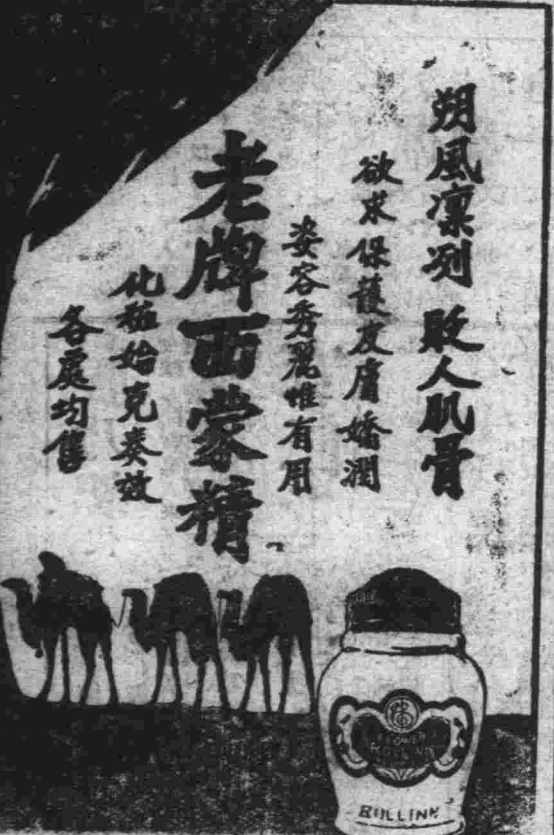 朔風凜冽 敗人肌骨
欲求保護皮膚嬌潤
姿容秀麗惟有用
老牌西蒙精
化粧始克奏效
各處均售